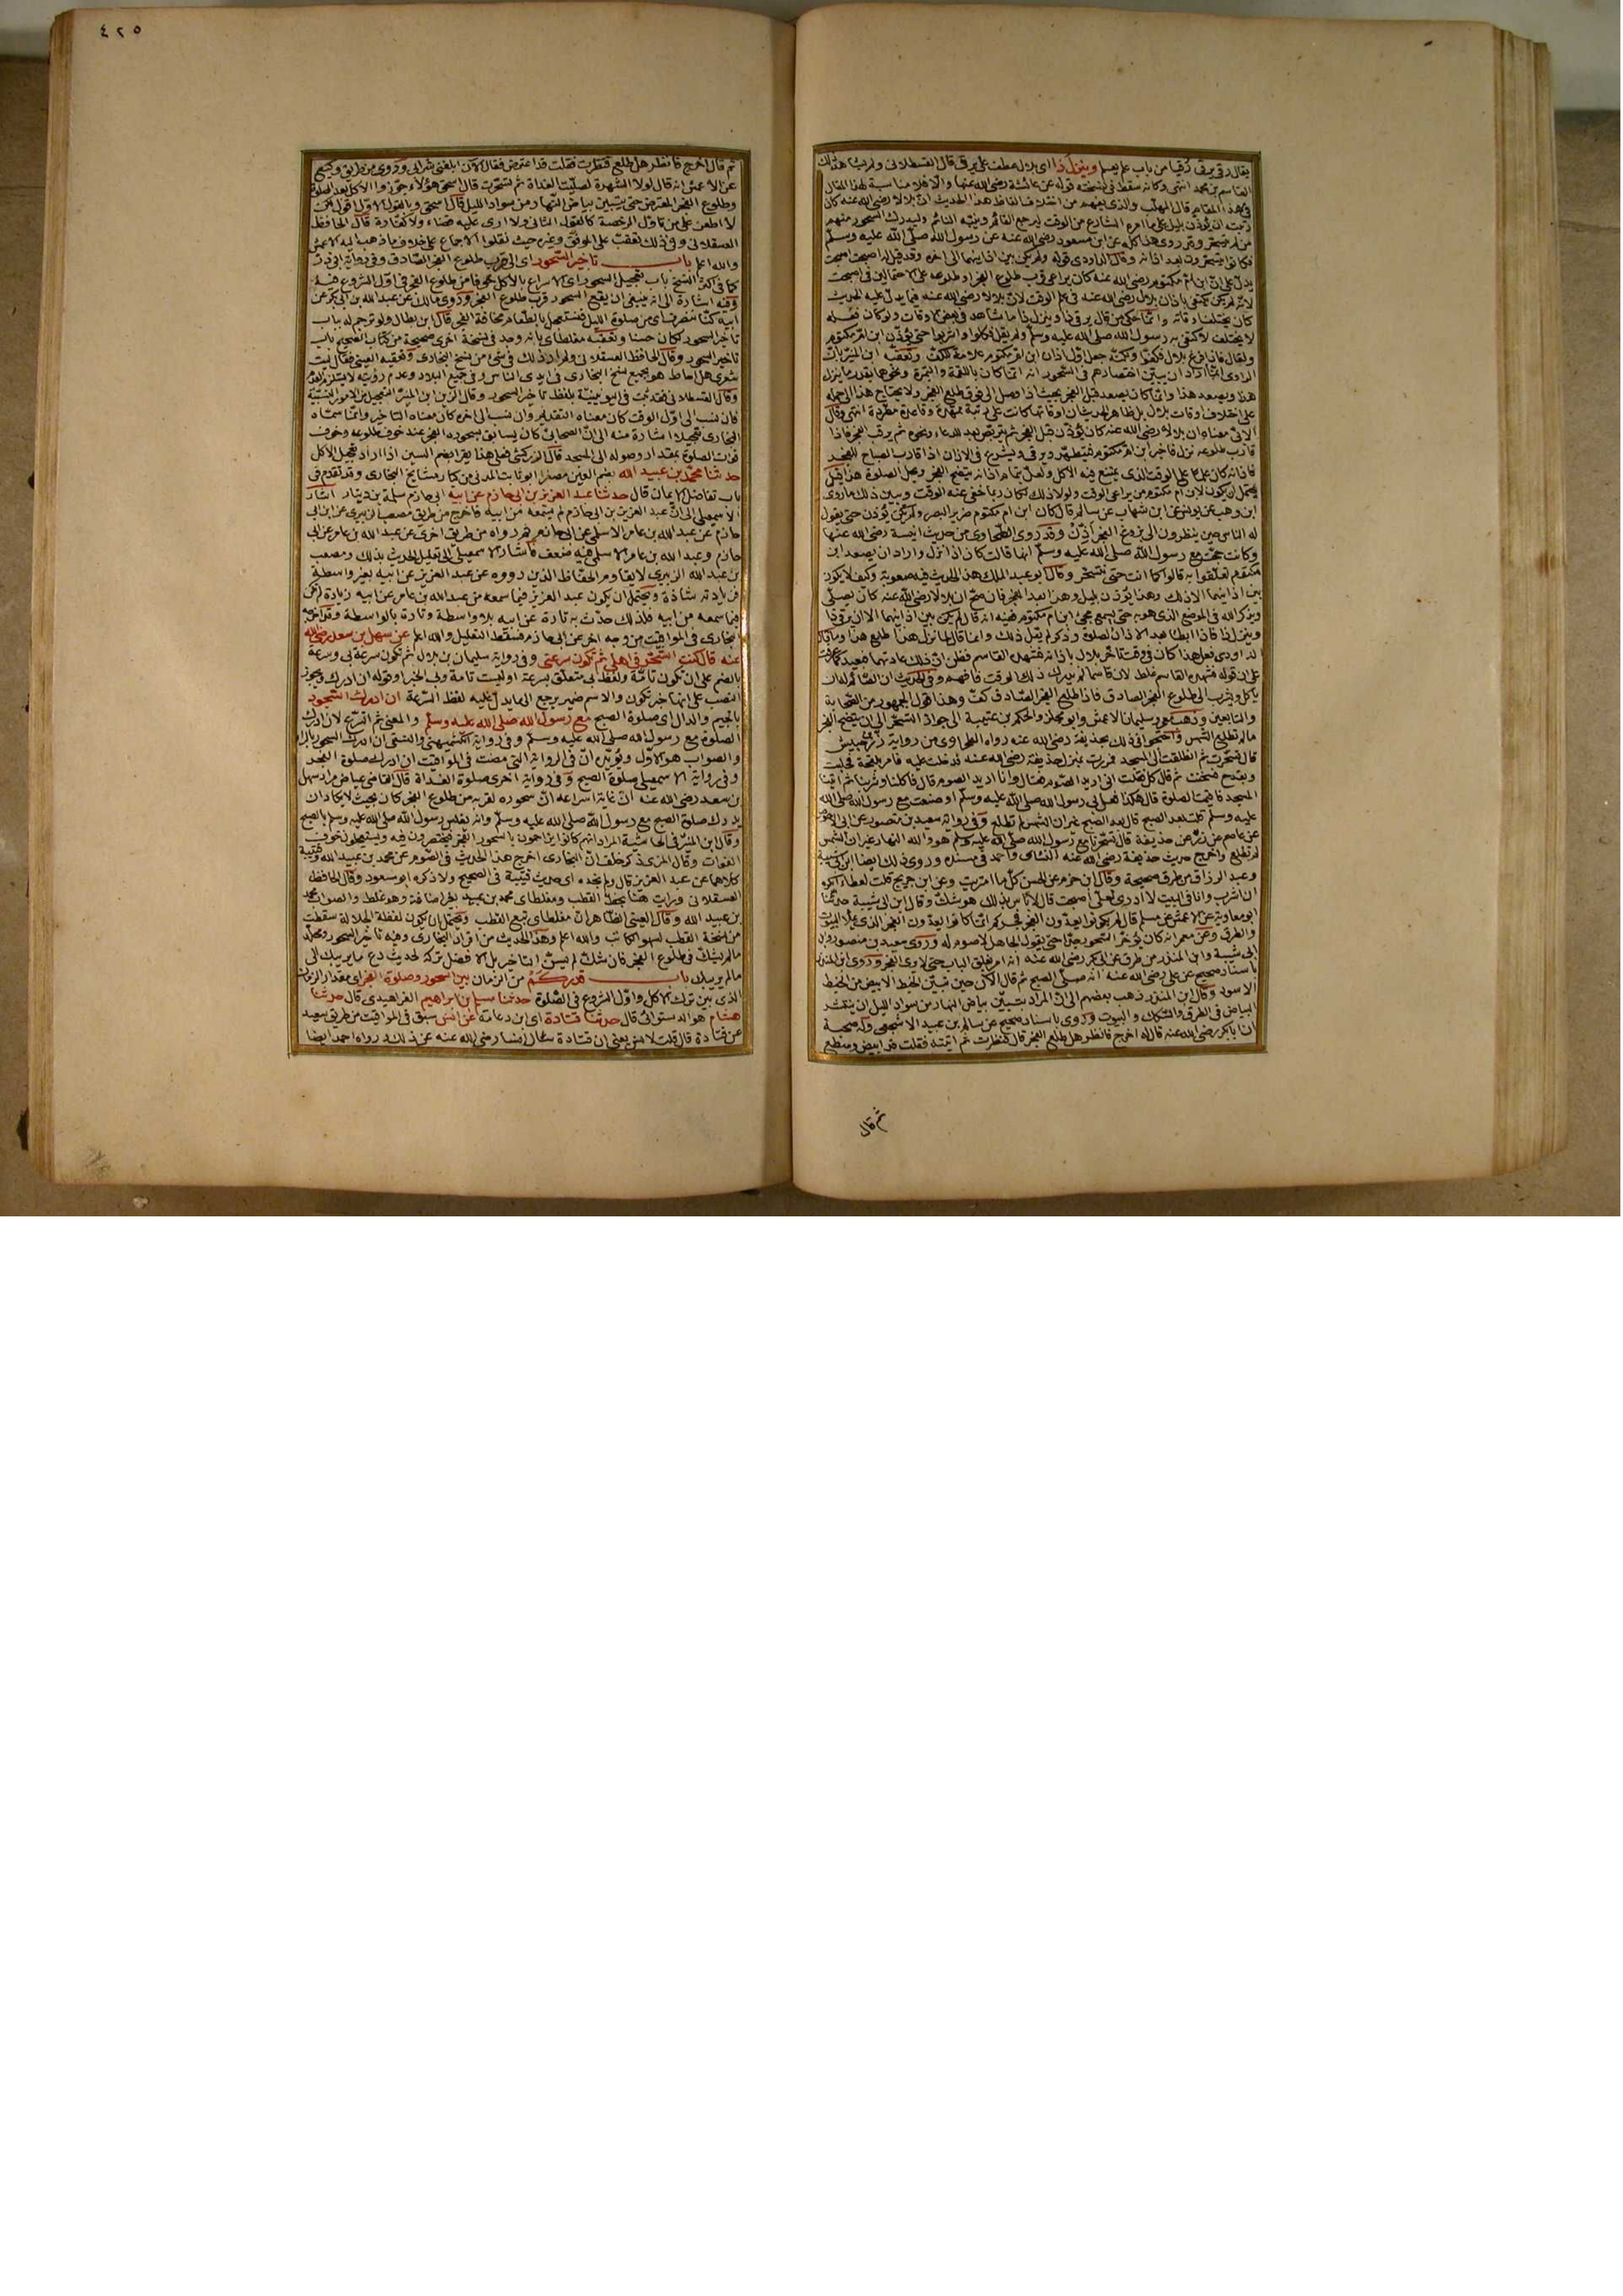 يقال رقى يرقى رقيا من باب علم يعلم وينزل ذا اى بلال عطف على يرقى قال القسطلانى ولم يشاهد ذلك
القاسم بن محمد انتهى وكانه سقط فى نسخته قوله عن عائشة رضى الله عنها والا فلا مناسبة لهذا المقال
فى هذا المقام قال المهلب والذى يفهم من اختلاف الفاظ هذا الحديث ان بلالا رضى الله عنه كان
رتبته ان يؤذن بليل على ما امره الشارع من الوقت ليرجع القائم وينبه النائم وليدرك السحور منهم
من لم يتسحر وقد روى هذا كله عن ابن مسعود رضى الله عنه عن رسول الله صلى الله عليه وسلم
فكانوا يتسحرون بعد اذانه وقال الداودى قوله ولم يكن بين اذانيهما الى اخره وقد قيل له اصبحت اصبحت
يدل على ان ابن ام مكتوم رضى الله عنه كان يراعى قرب طلوع الفجر او طلوعه على الاحتمالين فى اصبحت
لانه لم يكن يكتفى باذان بلال رضى الله عنه فى علم الوقت لان بلالا رضى الله عنه فيما يدل عليه الحديث
كان يختلف اوقاته وانما حكى من قال يرقى ذا وينزل ذا ما شاهد فى بعض الاوقات ولو كان فعله
لا يختلف لاكتفى به رسول الله صلى الله عليه وسلم ولم يقل فكلوا واشربوا حتى يؤذن ابن ام مكتوم
ولقال فاذا فرغ بلال فكفوا ولكنه جعل اول اذان ابن ام مكتوم علامة للكف وتعقبه ابن المنير بان
الراوى انما اراد ان يبين اختصارهم فى السحور انه انما كان باللقمة والتمرة ونحوها بقدر ما ينزل
هذا ويصعد هذا وانما كان يصعد قبل الفجر بحيث اذا وصل الى فوق طلع الفجر ولا يحتاج هذا الى حمله
على اختلاف اوقات بلال بل ظاهر الحديث ان اوقاتها كانت على رتبة ممهدة وقاعدة مطردة انتهى وقال
الابى معناه ان بلالا رضى الله عنه كان يؤذن قبل الفجر ثم يتربص بعد للدعاء ونحوه ثم يرقب الفجر فاذا
قارب طلوعه نزل فاخبر ابن ام مكتوم فيتطهر ويرقى ويشرع فى الاذان اذا قارب الصباح للفجر
وكانت حجت مع رسول الله صلى الله عليه وسلم انها قالت كان اذا نزل واراد ان يصعد ابن
ام مكتوم تعلقوا به قالوا كما انت حتى نتسحر وقال ابو عبد الملك هذا الحديث فيه صعوبة وكيف لا يكون
بين اذانيهما الا ذلك وهذا يؤذن بليل وهذا بعد الفجر فان صح ان بلالا رضى الله عنه كان يصلى
ويذكر الله فى الموضع الذى هو به حتى يسمع مجئ ابن ام مكتوم
ياكل ويشرب الى طلوع الفجر الصادق فاذا طلع الفجر الصادق كف وهذا قول الجمهور من الصحابة
والتابعين وذهب معمر وسليمان الاعمش وابو مجلز والحكم بن عتيبة الى جواز التسحر الى ان يتضح الفجر
ما لم تطلع الشمس واحتجوا فى ذلك بحديث حذيفة رضى الله عنه رواه الطحاوى من رواية زر بن حبيش
قال تسحرت ثم انطلقت الى المسجد فمررت بمنزل حذيفة رضى الله عنه فدخلت عليه فامر بلقحة فحلبت
وبقدح فسخنت ثم قال كل فقلت انى اريد الصوم فقال وانا اريد الصوم قال فاكلنا وشربنا ثم اتينا
المسجد فاقيمت الصلوة قال هكذا فعل بى رسول الله صلى الله عليه وسلم او صنعت مع رسول الله صلى الله
عليه وسلم قلت بعد الصبح قال بعد الصبح غير ان الشمس لم تطلع وفى رواية سعيد بن منصور عن ابى الاحوص
عن عاصم عن زر عن حذيفة قال تسحرنا مع رسول الله صلى الله عليه وسلم هو والله النهار غير ان الشمس
لم تطلع واخرج حديث حذيفة رضى الله عنه النسائى واحمد فى مسنده وروى ذلك ايضا ابن ابى شيبة
وعبد الرزاق من طرق صحيحة وقال ابن حزم عن الحسن كل ما امتريت وعن ابن جريج قلت لعطاء ايكره
ان اشرب وانا فى البيت لا ادرى لعلى اصبحت قال لا باس بذلك هو شك وقال ابن ابى شيبة حدثنا
ابو معاوية عن الاعمش عن مسلم قال لم يكونوا يعدون الفجر فجركم انما كانوا يعدون الفجر الذى يملا البيوت
والطرق وعن معمر انه كان يؤخر السحور جدا حتى يقول الجاهل لا صوم له وروى سعيد بن منصور وابن
ابى شيبة وابن المنذر من طرق عن ابى بكر رضى الله عنه انه امر بغلق الباب حتى لا يرى الفجر وروى ابن المنذر
باسناد صحيح عن على رضى الله عنه انه صلى الصبح ثم قال الان حين تبين الخيط الابيض من الخيط
الاسود وقال ابن المنذر ذهب بعضهم الى ان المراد بتبين بياض النهار من سواد الليل ان ينتشر
البياض فى الطرق والسكك والبيوت وروى باسناد صحيح عن سالم بن عبيد الاشجعى وله صحبة
ان ابا بكر رضى الله عنه قال له اخرج فانظر هل طلع الفجر قال فنظرت ثم اتيته فقلت قد ابيض وسطع
ثم قال
٤٢٥
ثم قال اخرج فانظر هل طلع فنظرت فقلت قد اعترض فقال الآن ابلغنى شرابى وروى من طريق وكيع
عن الاعمش انه قال لولا الشهرة لصليت الغداة ثم تسحرت قال اسحق هؤلاء جوزوا الاكل بعد الصلوة
وطلوع الفجر المعترض حتى يتبين بياض النهار من سواد الليل قال اسحق وبالقول الاول اقول لكن
لا اطعن على من تاول الرخصة كالقول الثانى ولا ارى عليه قضاء ولا كفارة قال الحافظ
العسقلانى وفى ذلك تعقب على الموفق وغيره حيث نقلوا الاجماع على خلاف ما ذهب اليه الاعمش
والله اعلم باب تاخير السحور اى الى قرب طلوع الفجر الصادق وفى رواية ابى ذر
كما فى اكثر النسخ باب تعجيل السحور اى الاسراع بالاكل خوفا من طلوع الفجر فى اول الشروع فيه
وفيه اشارة الى انه ينبغى ان يقع السحور قرب طلوع الفجر وروى مالك عن عبد الله بن ابى بكر عن
ابيه كنا ننصرف اى من صلوة الليل فنستعجل بالطعام مخافة الفجر قال ابن بطال ولو ترجم له باب
تاخير السحور لكان حسنا وتعقبه مغلطاى بانه وجد فى نسخة اخرى صحيحة من كتاب الصحيح باب
تاخير السحور وقال الحافظ العسقلانى ولم ار ذلك فى شئ من نسخ البخارى وتعقبه العينى فقال ليت
شعرى هل احاط هو بجميع نسخ البخارى فى ايدى الناس وفى جميع البلاد وعدم رؤيته لا يستلزم العدم
وقال القسطلانى قد ثبت فى اليونينية بلفظ تاخير السحور وقال الزين ابن المنير التعجيل من الامور النسبية
فان نسب الى اول الوقت كان معناه التقديم وان نسب الى اخره كان معناه التاخير وانما سماه
البخارى تعجيلا اشارة منه الى ان الصحابى كان يسابق بسحوره الفجر عند خوف طلوعه وخوف
فوات الصلوة بمقدار وصوله الى المسجد قال الزركشى فعلى هذا يقرا بضم السين اذا اراد تعجيل الاكل
حدثنا محمد بن عبيد الله بضم العين مصغرا ابو ثابت المدنى من كبار مشايخ البخارى وقد تقدم فى
باب تفاضل الايمان قال حدثنا عبد العزيز بن ابى حازم عن ابيه ابى حازم سلمة بن دينار اشار
الاسمعيلى الى ان عبد العزيز بن ابى حازم لم يسمعه من ابيه فاخرج من طريق مصعب الزبيرى عن ابن ابى
حازم عن عبد الله بن عامر الاسلمى عن ابى حازم ثم رواه من طريق اخرى عن عبد الله بن عامر عن ابى
حازم وعبد الله بن عامر الاسلمى فيه ضعف فاشار الاسمعيلى الى تعليل الحديث بذلك ومصعب
بن عبد الله الزبيرى لا يقاوم الحفاظ الذين رووه عن عبد العزيز عن ابيه بغير واسطة
فزيادته شاذة ويحتمل ان يكون عبد العزيز فيما سمعه من عبد الله بن عامر عن ابيه زيادة لم تكن
فيما سمعه من ابيه فلذلك حدث به تارة عن ابيه بلا واسطة وتارة بالواسطة وقد اخرجه
البخارى فى المواقيت من وجه اخر عن ابى حازم فسقط التعليل والله اعلم عن سهل بن سعد رضى الله
عنه قال كنت اتسحر فى اهلى ثم تكون سرعتى وفى رواية سليمان بن بلال ثم تكون سرعة بى وسرعة
بالضم على ان تكون تامة ولفظ بى متعلق بسرعة او ليست تامة وبى الخبر او قوله ان ادرك ويجوز
النصب على انها خبر تكون والاسم ضمير يرجع الى ما يدل عليه لفظ السرعة ان ادرك السحود
بالجيم والدال اى صلوة الصبح مع رسول الله صلى الله عليه وسلم والمعنى ثم اسرع لان ادرك
الصلوة مع رسول الله صلى الله عليه وسلم وفى رواية الكشميهنى والنسفى ان ادرك السحور بالراء
والصواب هو الاول ويؤيده ان فى الرواية التى مضت فى المواقيت ان ادرك صلوة الفجر
وفى رواية الاسمعيلى صلوة الصبح وفى رواية اخرى صلوة الغداة قال القاضى عياض مراد سهل
بن سعد رضى الله عنه ان غاية اسراعه ان سحوره لقربه من طلوع الفجر كان بحيث لا يكاد ان
يدرك صلوة الصبح مع رسول الله صلى الله عليه وسلم وانه يغلس رسول الله صلى الله عليه وسلم بالصبح
وقال ابن المنير فى الحاشية المراد انهم كانوا يزاحمون بالسحور الفجر فيختصرون فيه ويستعجلون خوف
الفوات وقال المزى ذكر خلف ان البخارى اخرج هذا الحديث فى الصوم عن محمد بن عبيد الله وقتيبة
كلاهما عن عبد العزيز قال ولم نجده اى حديث قتيبة فى الصحيح ولا ذكره ابو مسعود وقال الحافظ
العسقلانى ورايت هنا بخط القطب ومغلطاى محمد بن عبيد بغير اضافة وهو غلط والصواب محمد
بن عبيد الله وقال العينى الظاهر ان مغلطاى تبع القطب ويحتمل ان يكون لفظة الجلالة سقطت
من نسخة القطب لسهو الكاتب والله اعلم وهذا الحديث من افراد البخارى وفيه تاخير السحور ومحله
ما لم يشك فى طلوع الفجر فان شك لم يسن التاخير بل الافضل تركه لحديث دع ما يريبك الى
ما لم يريبك باب قدر كم من الزمان بين السحور وصلوة الفجر اى مقدار الزمان
الذى بين ترك الاكل واول الشروع فى الصلوة حدثنا مسلم بن ابراهيم الفراهيدى قال حدثنا
هشام هو الدستوائى قال حدثنا قتادة اى ابن دعامة عن انس سبق فى المواقيت من طريق سعيد
عن قتادة قال قلت لانس يعنى ان قتادة سال انسا رضى الله عنه عن ذلك ورواه احمد ايضا